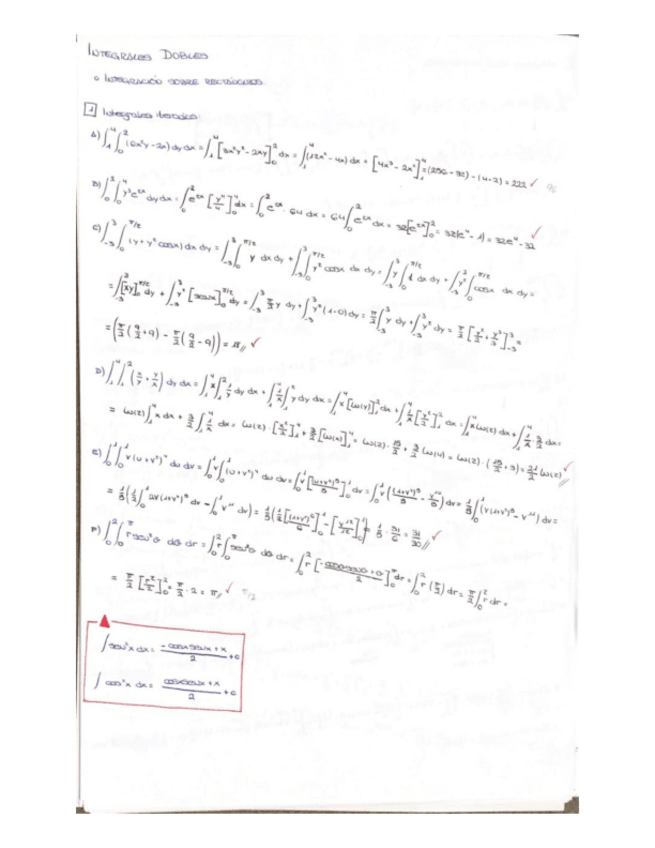 INTEGRALES DOBLES
○ INTEGRACIÓN SOBRE RECTÁNGULOS
1 Integrales iteradas
A) ∫₁⁴∫₀² (6x²y - 2x) dy dx = ∫₁⁴ [3x²y² - 2xy]₀² dx = ∫₁⁴ (12x² - 4x) dx = [4x³ - 2x²]₁⁴ = (256 - 32) - (4 - 2) = 222 ✓
B) ∫₀²∫₀⁴ y³e²ˣ dy dx = ∫₀² e²ˣ [y⁴/4]₀⁴ dx = ∫₀² e²ˣ · 64 dx = 64 ∫₀² e²ˣ dx = 32[e²ˣ]₀² = 32(e⁴ - 1) = 32e⁴ - 32 ✓
C) ∫₋₃³∫₀^(π/2) (y + y² cosx) dx dy = ∫₋₃³∫₀^(π/2) y dx dy + ∫₋₃³∫₀^(π/2) y² cosx dx dy = ∫₋₃³ y ∫₀^(π/2) 1 dx dy + ∫₋₃³ y² ∫₀^(π/2) cosx dx dy =
= ∫₋₃³ [xy]₀^(π/2) dy + ∫₋₃³ y² [senx]₀^(π/2) dy = ∫₋₃³ π/2 y dy + ∫₋₃³ y² (1-0) dy = π/2 ∫₋₃³ y dy + ∫₋₃³ y² dy = π/2 [y²/2 + y³/3]₋₃³ =
= (π/2 (9/2 + 9) - π/2 (9/2 - 9)) = ✓
D) ∫₁⁴∫₁² (x/y + y/x) dy dx = ∫₁⁴ x ∫₁² 1/y dy dx + ∫₁⁴ 1/x ∫₁² y dy dx = ∫₁⁴ x [ln(y)]₁² dx + ∫₁⁴ 1/x [y²/2]₁² dx = ∫₁⁴ x ln(2) dx + ∫₁⁴ 1/x · 3/2 dx =
= ln(2) ∫₁⁴ x dx + 3/2 ∫₁⁴ 1/x dx = ln(2) · [x²/2]₁⁴ + 3/2 [ln(x)]₁⁴ = ln(2) · 15/2 + 3/2 ln(4) = ln(2) · (15/2 + 3) = 21/2 ln(2) ✓
E) ∫₀¹∫₀¹ v(u + v²)⁴ du dv = ∫₀¹ v ∫₀¹ (u + v²)⁴ du dv = ∫₀¹ v [(u+v²)⁵/5]₀¹ dv = ∫₀¹ v ((1+v²)⁵/5 - v¹⁰/5) dv = 1/5 ∫₀¹ (v(1+v²)⁵ - v¹¹) dv =
= 1/5 (1/2 ∫₀¹ 2v(1+v²)⁵ dv - ∫₀¹ v¹¹ dv) = 1/5 (1/2 [(1+v²)⁶/6]₀¹ - [v¹²/12]₀¹) = 1/5 · 31/6 = 31/30 ✓
F) ∫₀²∫₀^π r sen²θ dθ dr = ∫₀² r ∫₀^π sen²θ dθ dr = ∫₀² r [(-cosθ senθ + θ)/2]₀^π dr = ∫₀² r (π/2) dr = π/2 ∫₀² r dr =
= π/2 [r²/2]₀² = π/2 · 2 = π ✓ π/2
∫ sen²x dx = (-cosx senx + x)/2 + c
∫ cos²x dx = (cosx senx + x)/2 + c